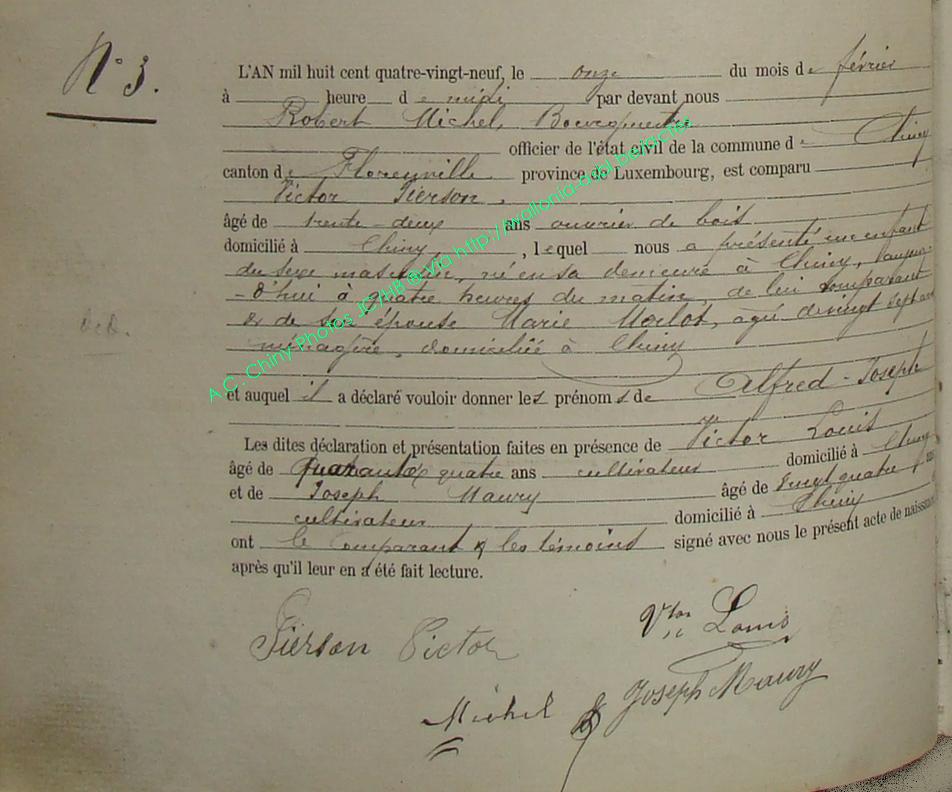 N° 3.
L'AN mil huit cent quatre-vingt-neuf, le onze du mois de février
à heure de midi par devant nous
Robert Michel, Bourgmestre
officier de l'état civil de la commune de Chiny
canton de Florenville province de Luxembourg, est comparu
Victor Pierson,
âgé de trente-deux ans ouvrier de bois
domicilié à Chiny, lequel nous a présenté un enfant
du sexe masculin, né en sa demeure à Chiny, aujour-
-d'hui à quatre heures du matin, de lui comparant
& de son épouse Marie, agée de vingt sept ans
ménagère, domiciliée à Chiny
et auquel il a déclaré vouloir donner les prénoms de Alfred-Joseph
Les dites déclaration et présentation faites en présence de Victor Louis
âgé de quarante quatre ans cultivateur domicilié à Chiny
et de Joseph Maury âgé de vingt quatre ans
cultivateur domicilié à Chiny
ont le comparant & les témoins signé avec nous le présent acte de naissance
après qu'il leur en a été fait lecture.
Pierson Victor
Vtor Louis
Michel R
Joseph Maury
A.C. Chiny Photos JC/HB ® via http://wallonia-adbl.be/actes